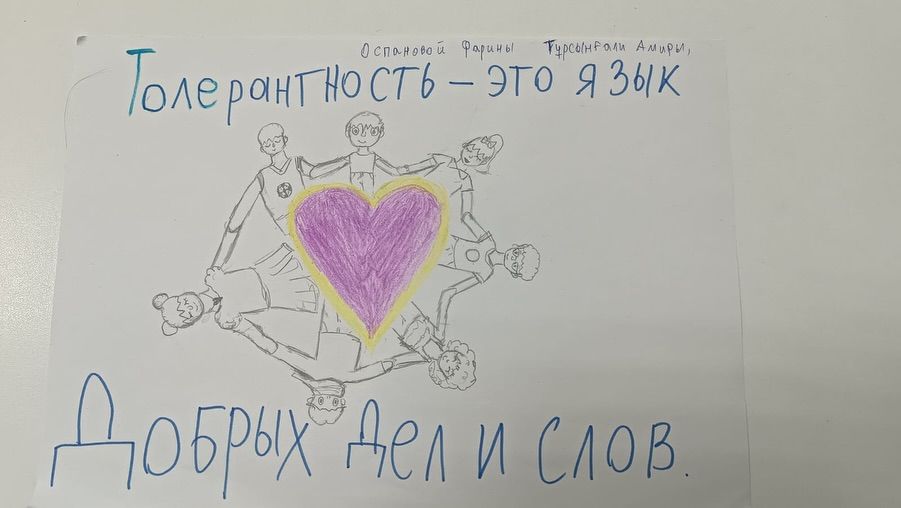 Оспановой Фарины Тұрсынғали Амиры,
Толерантность – это язык
Добрых дел и слов.